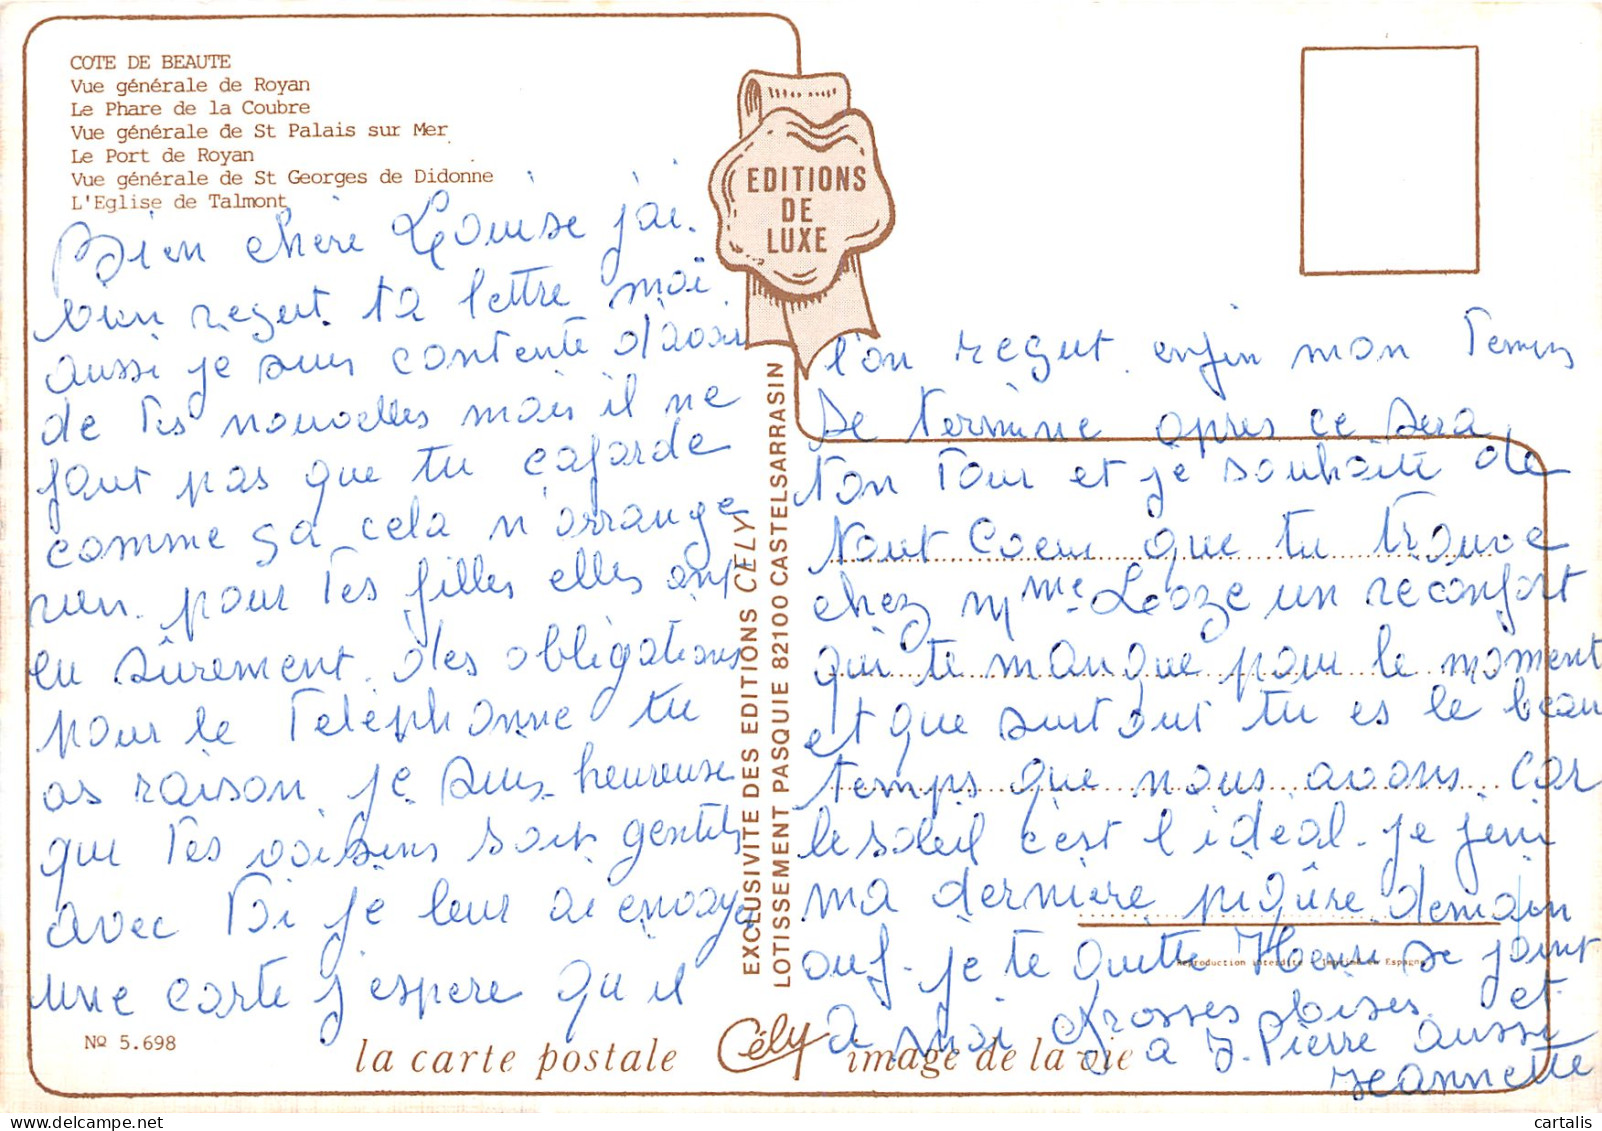 COTE DE BEAUTE
Vue générale de Royan
Le Phare de la Coubre
Vue générale de St Palais sur Mer
Le Port de Royan
Vue générale de St Georges de Didonne
L'Eglise de Talmont
Bien chère Louise j'ai
bien reçut ta lettre moi
aussi je suis contente d'avoir
de tes nouvelles mais il ne
faut pas que tu cafarde
comme ça cela n'arrange
rien pour tes filles elles ont
eu sûrement des obligations
pour le Téléphonne tu
as raison je suis heureuse
que tes voisins soit gentils
avec Toi je leur ai envoyé
une carte j'espère qu'il
No 5.698
EDITIONS
DE
LUXE
EXCLUSIVITE DES EDITIONS CELY
LOTISSEMENT PASQUIE 82100 CASTELSARRASIN
l'on reçut enfin mon Temps
se termine après ce sera
ton Tour et je souhaite de
tout Coeur que tu trouve
chez Mme Looze un reconfort
qui te manque pour le moment
et que surtout tu es le beau
temps que nous avons car
le soleil c'est l'idéal. je fini
ma dernière piqûre demain
ouf. je te quitte Henri se joint
Reproduction interdite Imprimé en Espagne
a moi Grosses bises et
a J. Pierre aussi
Jeannette
la carte postale Cély image de la vie
cartalis